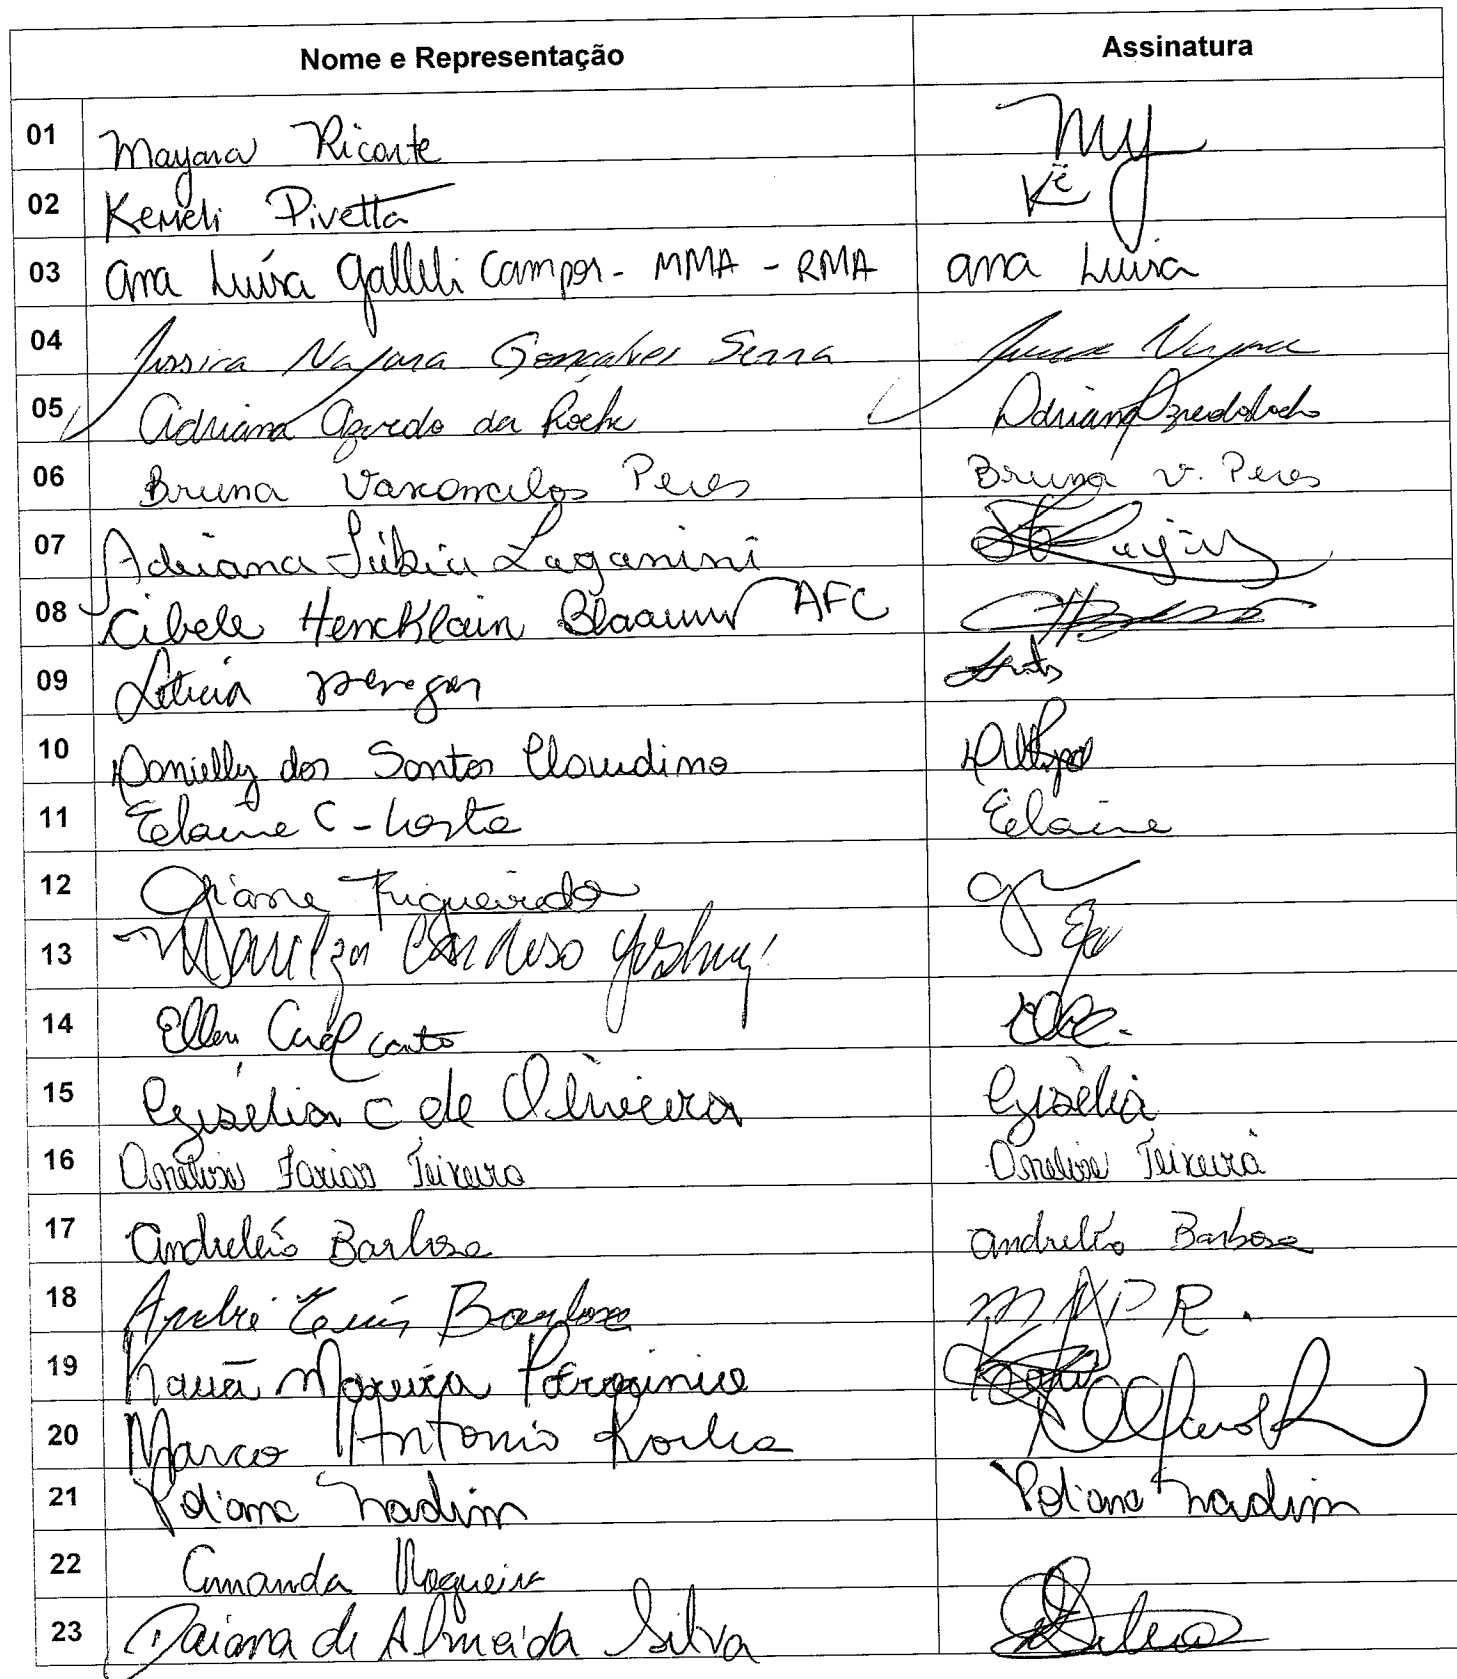 Nome e Representação Assinatura
01 Mayara Ricarte My
02 Kemeli Pivetta Kê
03 Ana Luísa Galleli Campos - MMA - RMA Ana Luísa
04 Jessica Najara Gonçalves Senna
05 Adriana Azevedo da Rocha Adriana Azevedo Rocha
06 Bruna Vasconcelos Peres Bruna V. Peres
07 Adriana Lúbia Laganini
08 Cibele Hencklain Blaauw AFC
09 Leticia
10 Danielly dos Santos Claudino
11 Elaine C. Costa Elaine
12 Giane Figueiredo
13 Cardoso
14 Ellen
15 Gisélia C de Oliveira Gisélia
16 Anelise Farias Teixeira Anelise Teixeira
17 Andreléo Barbosa Andreléo Barbosa
18 André Luís Barbosa M A P R.
19 Kauã Moreira
20 Marco Antonio Rocha
21 Poliana Nadim Poliana Nadim
22 Amanda Nogueira
23 Daiana de Almeida Silva